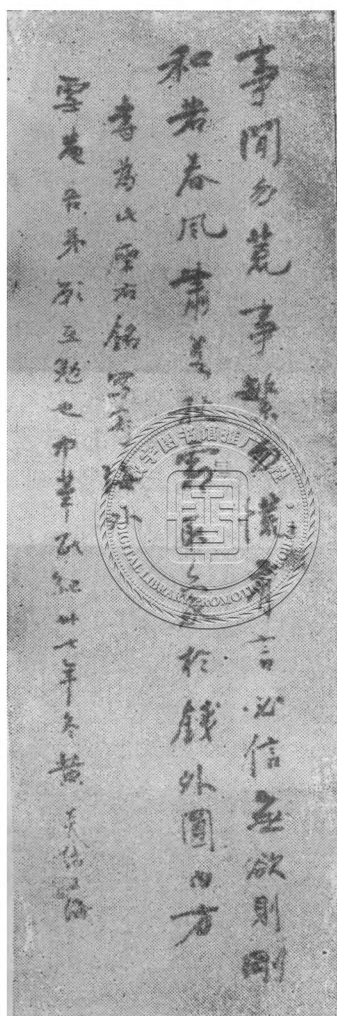 事閒勿荒事繁勿慌有言必信無欲則剛
和若春風肅若秋霜取象於錢外圓內方
書為山座右銘寫寄海外
吾弟願互勉也中華民紀卅七年冬黃炎培
DIGITAL LIBRARY PROMOTION